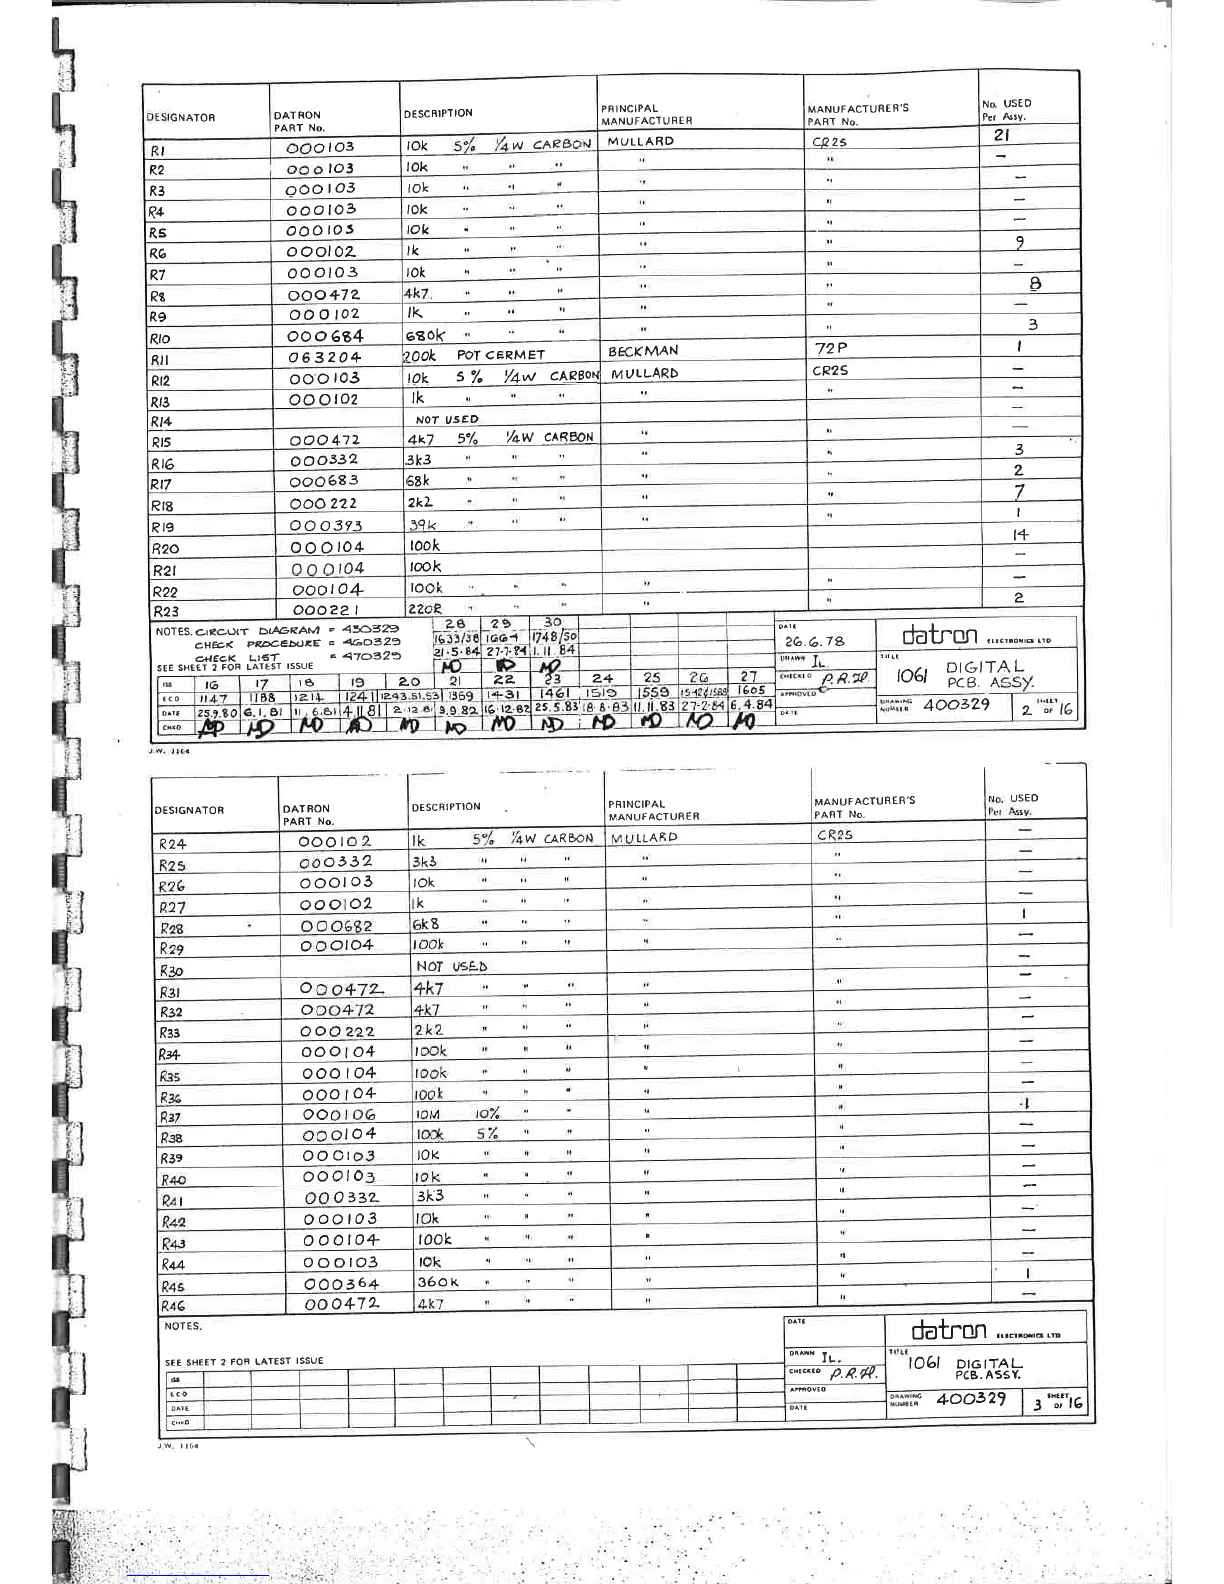 DESIGNATOR DATRON PART No. DESCRIPTION PRINCIPAL MANUFACTURER MANUFACTURER'S PART No. No. USED Per Assy.
R1 000103 10k 5% 1/4W CARBON MULLARD CR25 21
R2 000103 10k " " " " " —
R3 000103 10k " " " " " —
R4 000103 10k " " " " " —
R5 000103 10k " " " " " —
R6 000102 1k " " " " " 9
R7 000103 10k " " " " " —
R8 000472 4k7 " " " " " 8
R9 000102 1k " " " " " —
R10 000684 680k " " " " " 3
R11 063204 200k POT CERMET BECKMAN 72P 1
R12 000103 10k 5% 1/4W CARBON MULLARD CR25 —
R13 000102 1k " " " " " —
R14 NOT USED —
R15 000472 4k7 5% 1/4W CARBON " " —
R16 000332 3k3 " " " " " 3
R17 000683 68k " " " " " 2
R18 000222 2k2 " " " " " 7
R19 000393 39k " " " " " 1
R20 000104 100k 14
R21 000104 100k —
R22 000104 100k " " " " " —
R23 000221 220R " " " " " 2
NOTES. CIRCUIT DIAGRAM = 430329
CHECK PROCEDURE = 460329
CHECK LIST = 470329
SEE SHEET 2 FOR LATEST ISSUE
28 29 30
1633/38 1664 1748/50
21.5.84 27.7.84 1.11.84
ISS 16 17 18 19 20 21 22 23 24 25 26 27
ECO 1147 1188 1214 1241 1243.51.53 1369 1431 1461 1519 1559 1542/1588 1605
DATE 25.9.80 6.1.81 11.6.81 4.11.81 2.12.81 3.9.82 16.12.82 25.5.83 18.8.83 11.11.83 27.2.84 6.4.84
CHKD
DATE 26.6.78
DRAWN IL.
CHECKED P.R.H.
APPROVED
DATE
datron ELECTRONICS LTD
TITLE 1061 DIGITAL PCB. ASSY.
DRAWING NUMBER 400329 SHEET 2 OF 16
J.W. 1164
DESIGNATOR DATRON PART No. DESCRIPTION PRINCIPAL MANUFACTURER MANUFACTURER'S PART No. No. USED Per Assy.
R24 000102 1k 5% 1/4W CARBON MULLARD CR25 —
R25 000332 3k3 " " " " " —
R26 000103 10k " " " " " —
R27 000102 1k " " " " " —
R28 000682 6k8 " " " " " 1
R29 000104 100k " " " " " —
R30 NOT USED —
R31 000472 4k7 " " " " " —
R32 000472 4k7 " " " " " —
R33 000222 2k2 " " " " " —
R34 000104 100k " " " " " —
R35 000104 100k " " " " " —
R36 000104 100k " " " " " —
R37 000106 10M 10% " " " " 1
R38 000104 100k 5% " " " " —
R39 000103 10k " " " " " —
R40 000103 10k " " " " " —
R41 000332 3k3 " " " " " —
R42 000103 10k " " " " " —
R43 000104 100k " " " " " —
R44 000103 10k " " " " " —
R45 000364 360k " " " " " 1
R46 000472 4k7 " " " " " —
NOTES.
SEE SHEET 2 FOR LATEST ISSUE
ISS
ECO
DATE
CHKD
DATE
DRAWN IL.
CHECKED P.R.H.
APPROVED
DATE
datron ELECTRONICS LTD
TITLE 1061 DIGITAL PCB. ASSY.
DRAWING NUMBER 400329 SHEET 3 OF 16
J.W. 1164